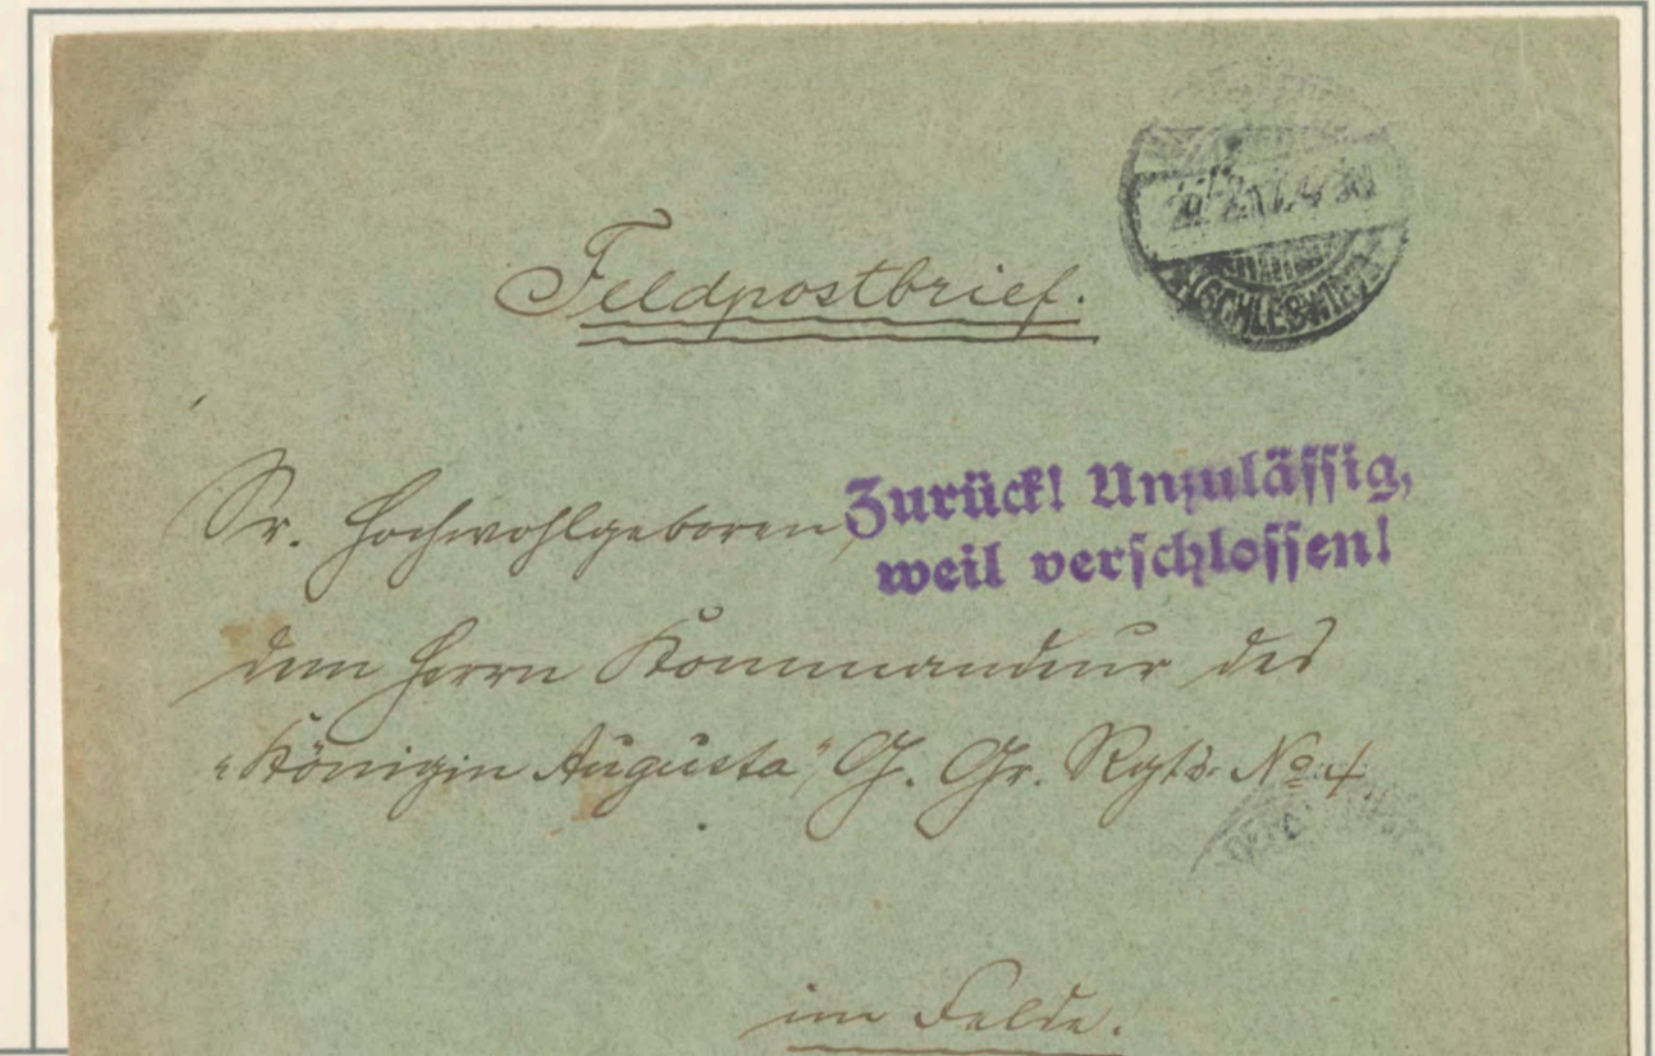 Feldpostbrief.
Sr. Hochwohlgeboren
Zurück! Unzulässig,
weil verschlossen!
dem Herrn Kommandeur des
„Königin Augusta" G. Gr. Rgts. No 4
im Felde.